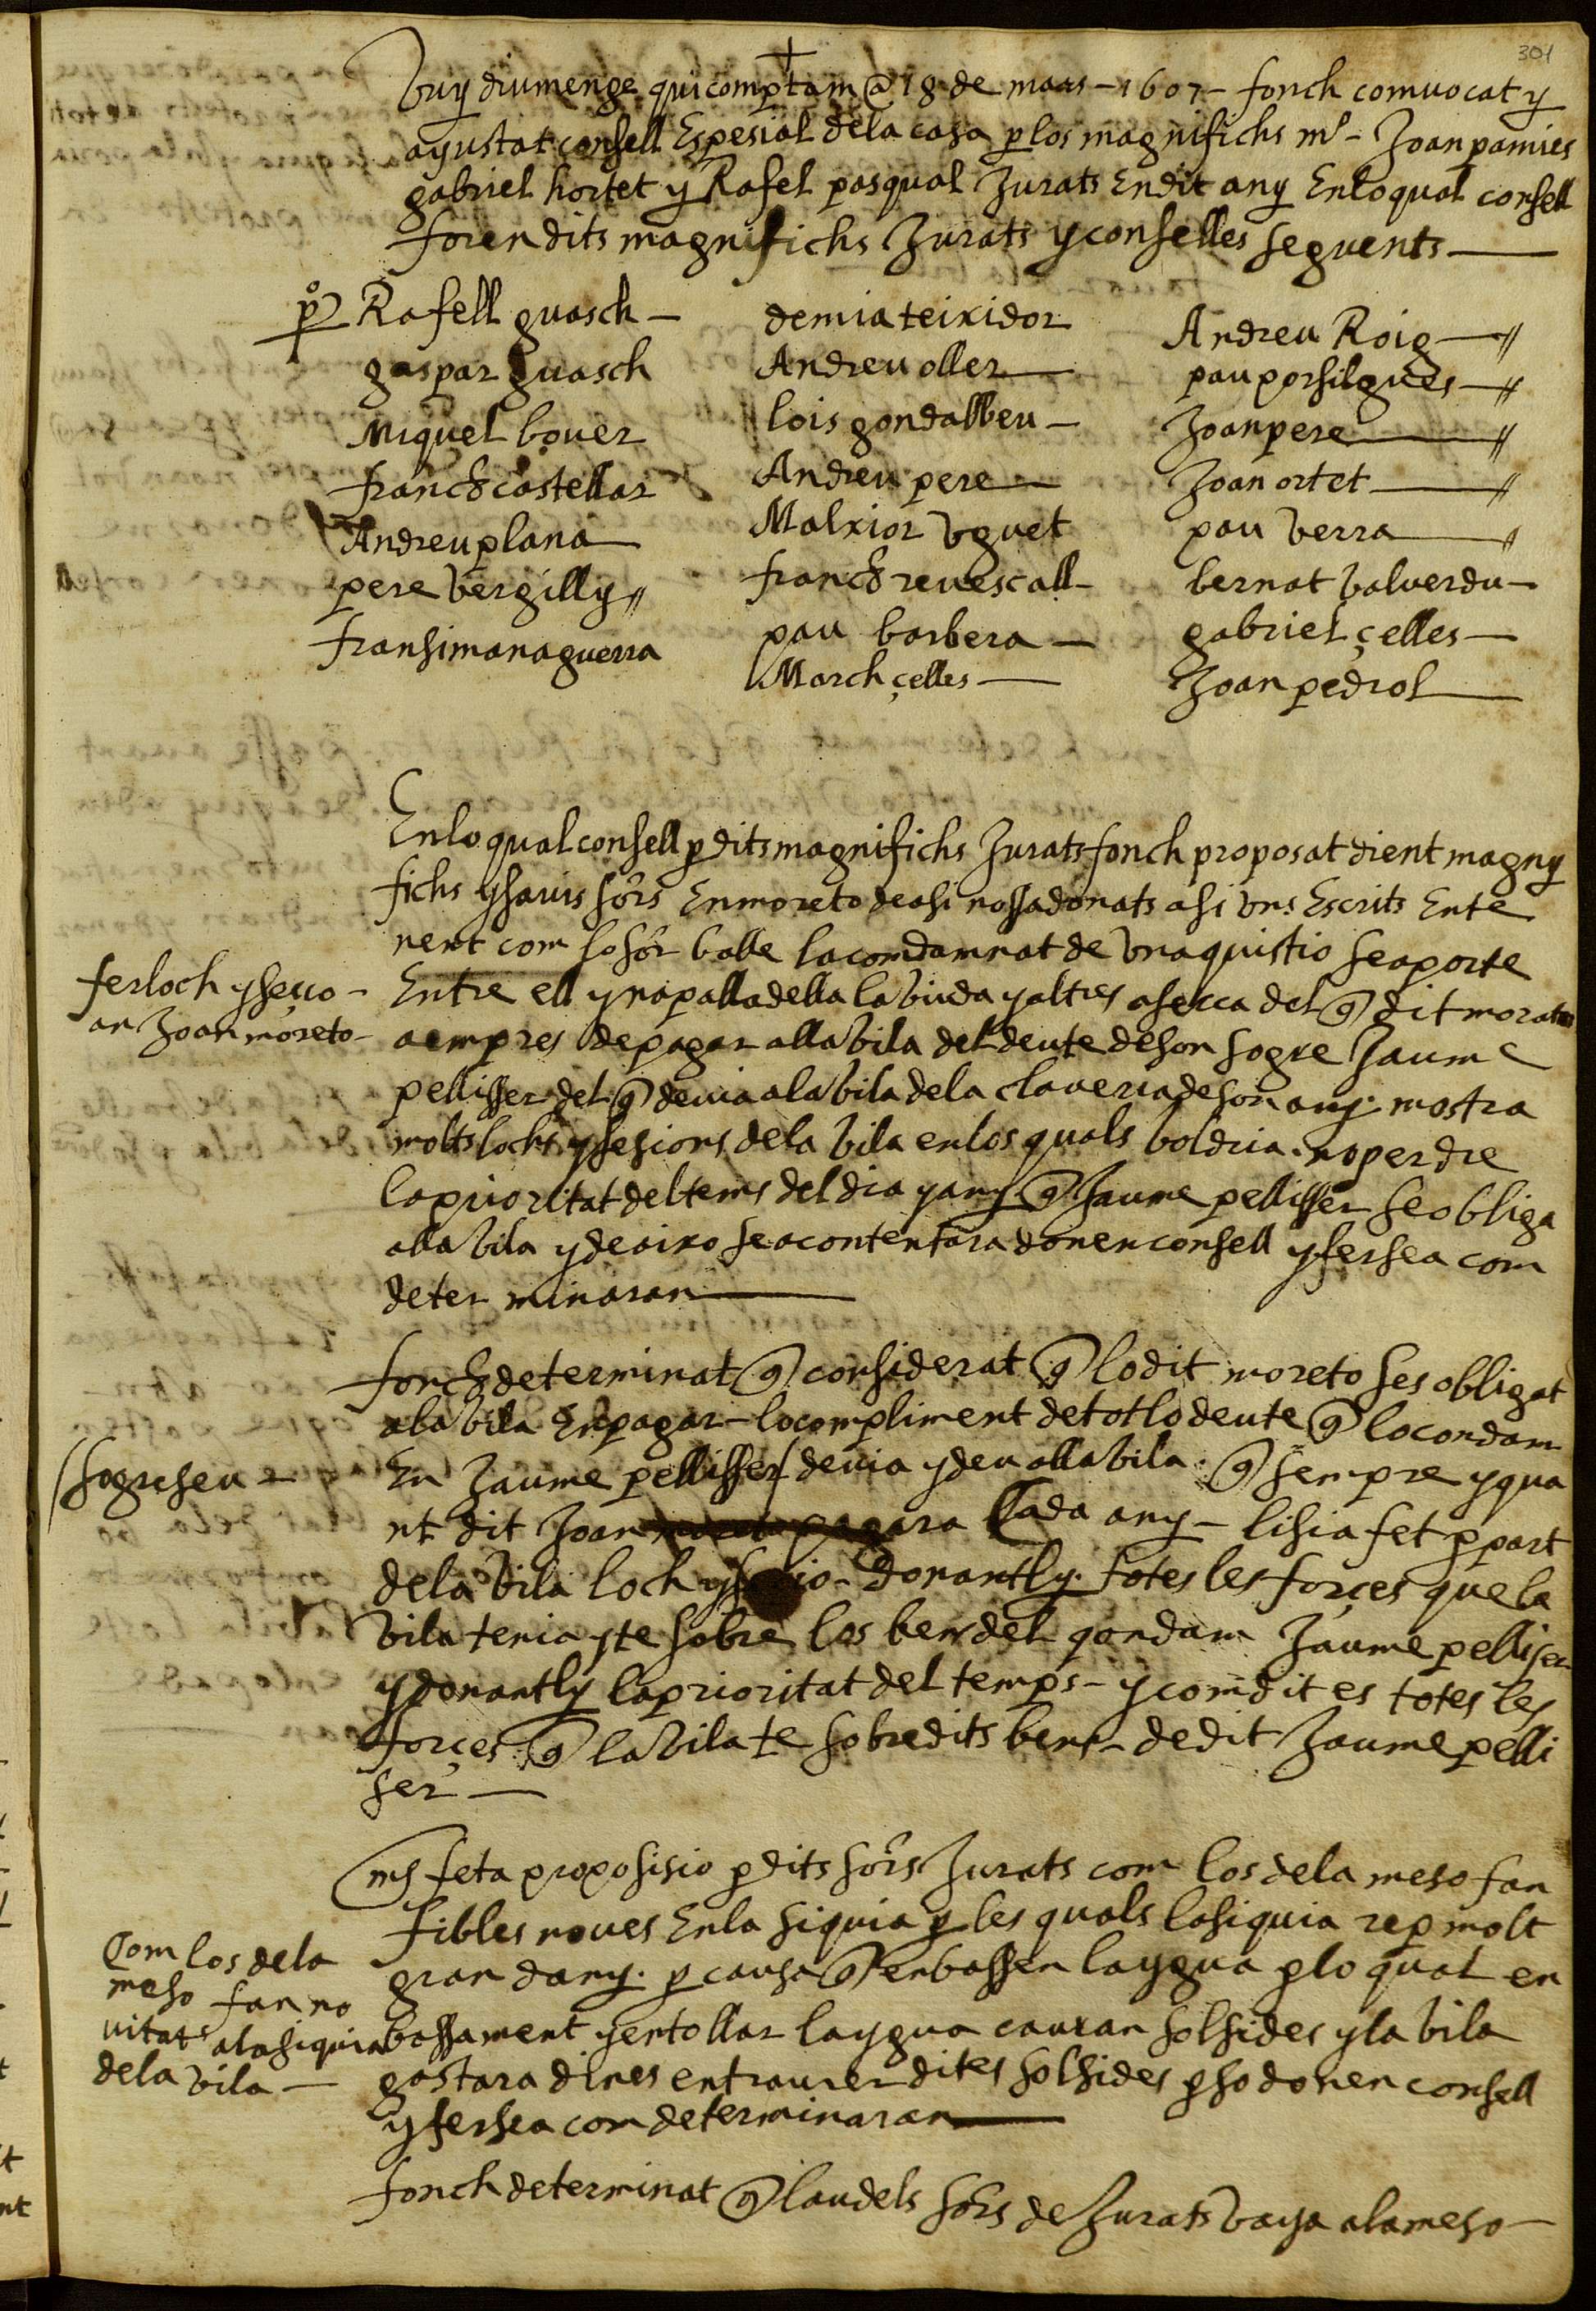 301
+
Vuy diumenge qui comptam @ 18 de mars - 1607 - fonch comvocat y
ajustat consell Espesial dela casa p los magnifichs mº - Joan pamies
gabriel hortet y Rafel pasqual Jurats En dit any En lo qual consell
foren dits magnifichs Jurats y conselles seguents
pº Rafell guasch -
gaspar guasch
Miquel bover
franch castellar
Andreu plana
pere vergilly //
fransi managuerra
demia teixidor
Andreu oller
lois gondalbeu -
Andreu pere
Malxior uguet
franch revescall -
pau barbera -
March çelles
Andreu Roig //
pau porsilgues //
Joan pere //
Joan ortet //
pau verra //
bernat valverdu -
gabriel çelles -
Joan pedrol
En lo qual consell p dits magnifichs Jurats fonch proposat dient magny
fichs y savis sors En moreto de asi nos sa donats asi uns Escrits Ente
nent com lo sor balle la comdamnat de una quistio se aporte
Entre ell y na palladella la viuda y altres aserca del q dit morato
a empres de pagar alla vila del deute de son sogre Jaume
pellisser del q devia a la vila dela claveria de son any. mostra
molts lochs y sesions dela vila en los quals voldria no perdre
la prioritat del tems del dia y any q Jaume pellisser se obliga
alla vila y de aixo se acontentara donen consell y fersea com
determinaran
fer loch y sessio -
an Joan moreto -
fonch determinat q considerat q lo dit moreto ses obligat
a la vila En pagar - lo compliment de tot lo deute q lo condam
En Jaume pellisser / devia y deu alla vila. q sempre y qua
nt dit Joan moreto pagara Cada any - li sia fet p part
dela vila loch y sesio - donantly. totes les forçes que la
vila tenia y te sobre los bens del qondam Jaume pelliser
y donantly la prioritat del temps - y com dit es totes les
forçes q la vila te sobre dits bens - de dit Jaume pelli
ser
/ sogre seu -
ms feta proposisio p dits sors Jurats com los dela meso fan
fibles noves En la siquia p les quals la siquia rep molt
gran dany. p causa q enbassen laygua p lo qual en
bassament y entollar laygua cauran solsides y la vila
gastara dines en traurer dites solsides p so donen consell
y fersea com determinaran
Com los dela
meso fan no
vitats a la siquia
dela vila
fonch determinat q la u dels sors de Jurats vaya a la meso